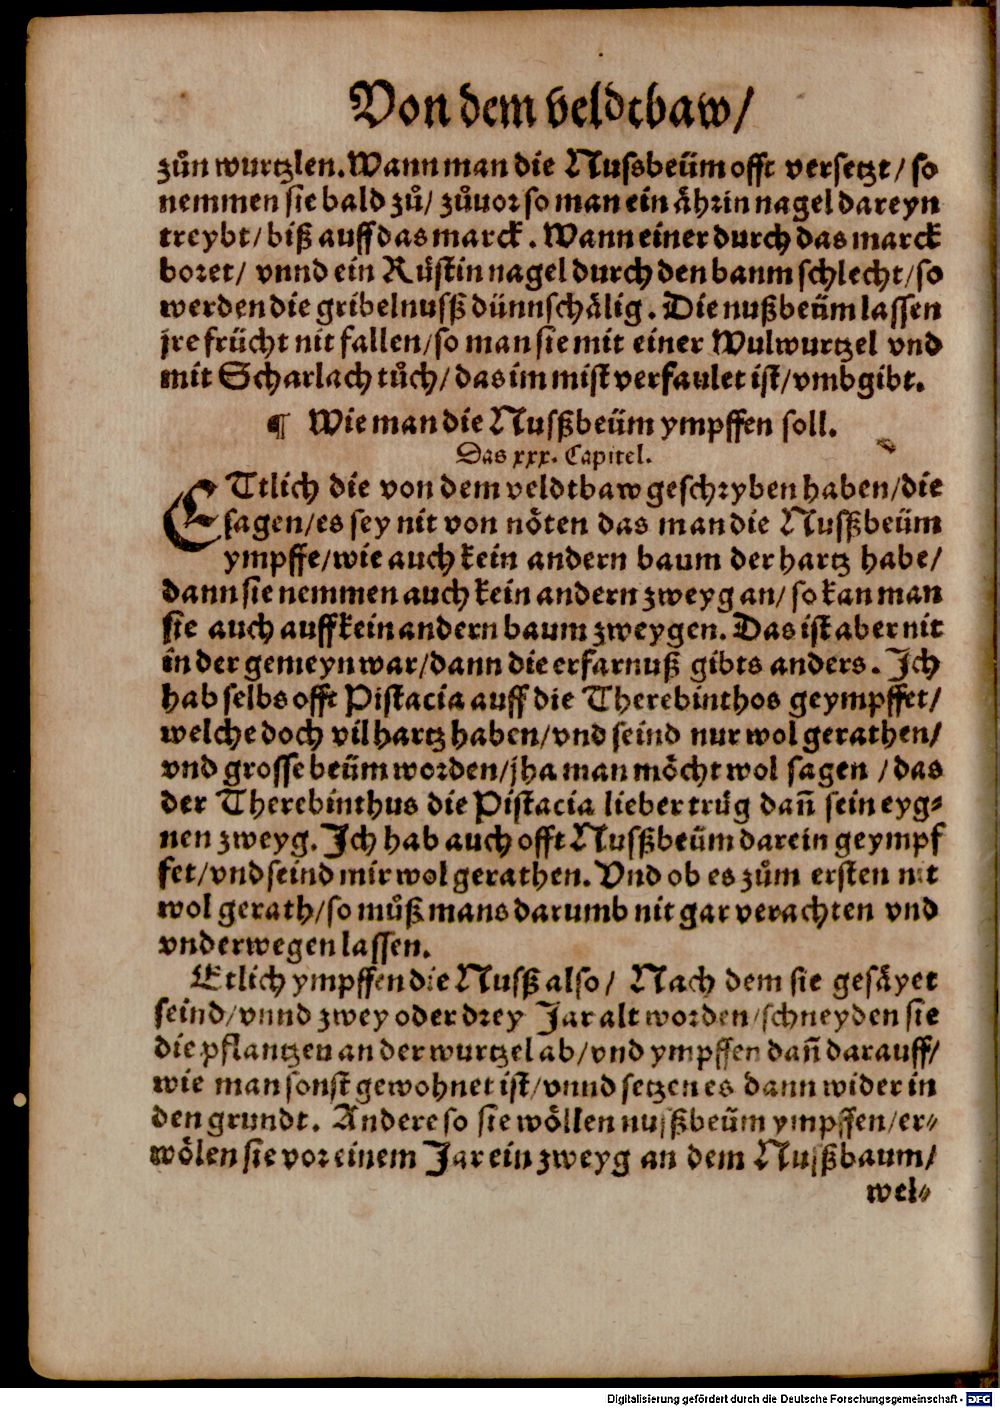 Von dem veldtbaw/
zůn wurtzlen. Wann man die Nussbeüm offt versetzt/ so
nemmen sie bald zů/ zůuor so man ein ährin nagel dareyn
treybt/ biß auff das marck. Wann einer durch das marck
boret/ vnnd ein Rüstin nagel durch den baum schlecht/ so
werden die gribelnusß dünnschälig. Die nußbeüm lassen
jre frücht nit fallen/ so man sie mit einer Wulwurtzel vnd
mit Scharlach tůch/ das im mist verfaulet ist/ vmbgibt.
¶ Wie man die Nusßbeüm ympffen soll.
Das xxx. Capitel.
ETtlich die von dem veldtbaw geschryben haben/ die
sagen/ es sey nit von nöten das man die Nusßbeüm
ympffe/ wie auch kein andern baum der hartz habe/
dann sie nemmen auch kein andern zweyg an/ so kan man
sie auch auff kein andern baum zweygen. Das ist aber nit
in der gemeyn war/ dann die erfarnuß gibts anders. Ich
hab selbs offt Pistacia auff die Therebinthos geympffet/
welche doch vil hartz haben/ vnd seind nur wol gerathen/
vnd grosse beüm worden/ jha man möcht wol sagen / das
der Therebinthus die Pistacia lieber trüg dañ sein eyg⸗
nen zweyg. Ich hab auch offt Nusßbeüm darein geympf
fet/ vnd seind mir wol gerathen. Vnd ob es zům ersten nit
wol gerath/ so můß mans darumb nit gar verachten vnd
vnderwegen lassen.
Etlich ympffen die Nusß also/ Nach dem sie gesäyet
seind/ vnnd zwey oder drey Jar alt worden/ schneyden sie
die pflantzen an der wurtzel ab/ vnd ympffen dañ darauff/
wie man sonst gewohnet ist/ vnnd setzen es dann wider in
den grundt. Andere so sie wöllen nusßbeüm ympffen/ er⸗
wölen sie vor einem Jar ein zweyg an dem Nusßbaum/
wel⸗
Digitalisierung gefördert durch die Deutsche Forschungsgemeinschaft - DFG